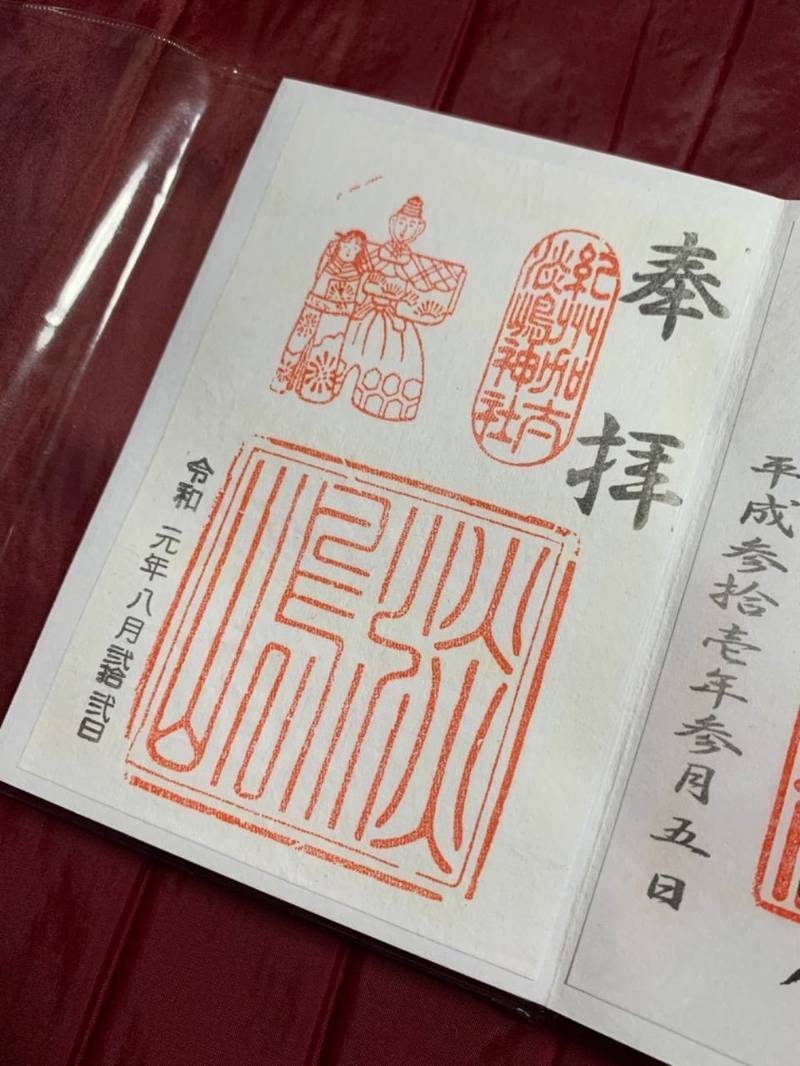 平成参拾壱年参月五日
奉拝
紀州加太
淡嶋神社
淡
嶋
令和元年八月弐拾弐日